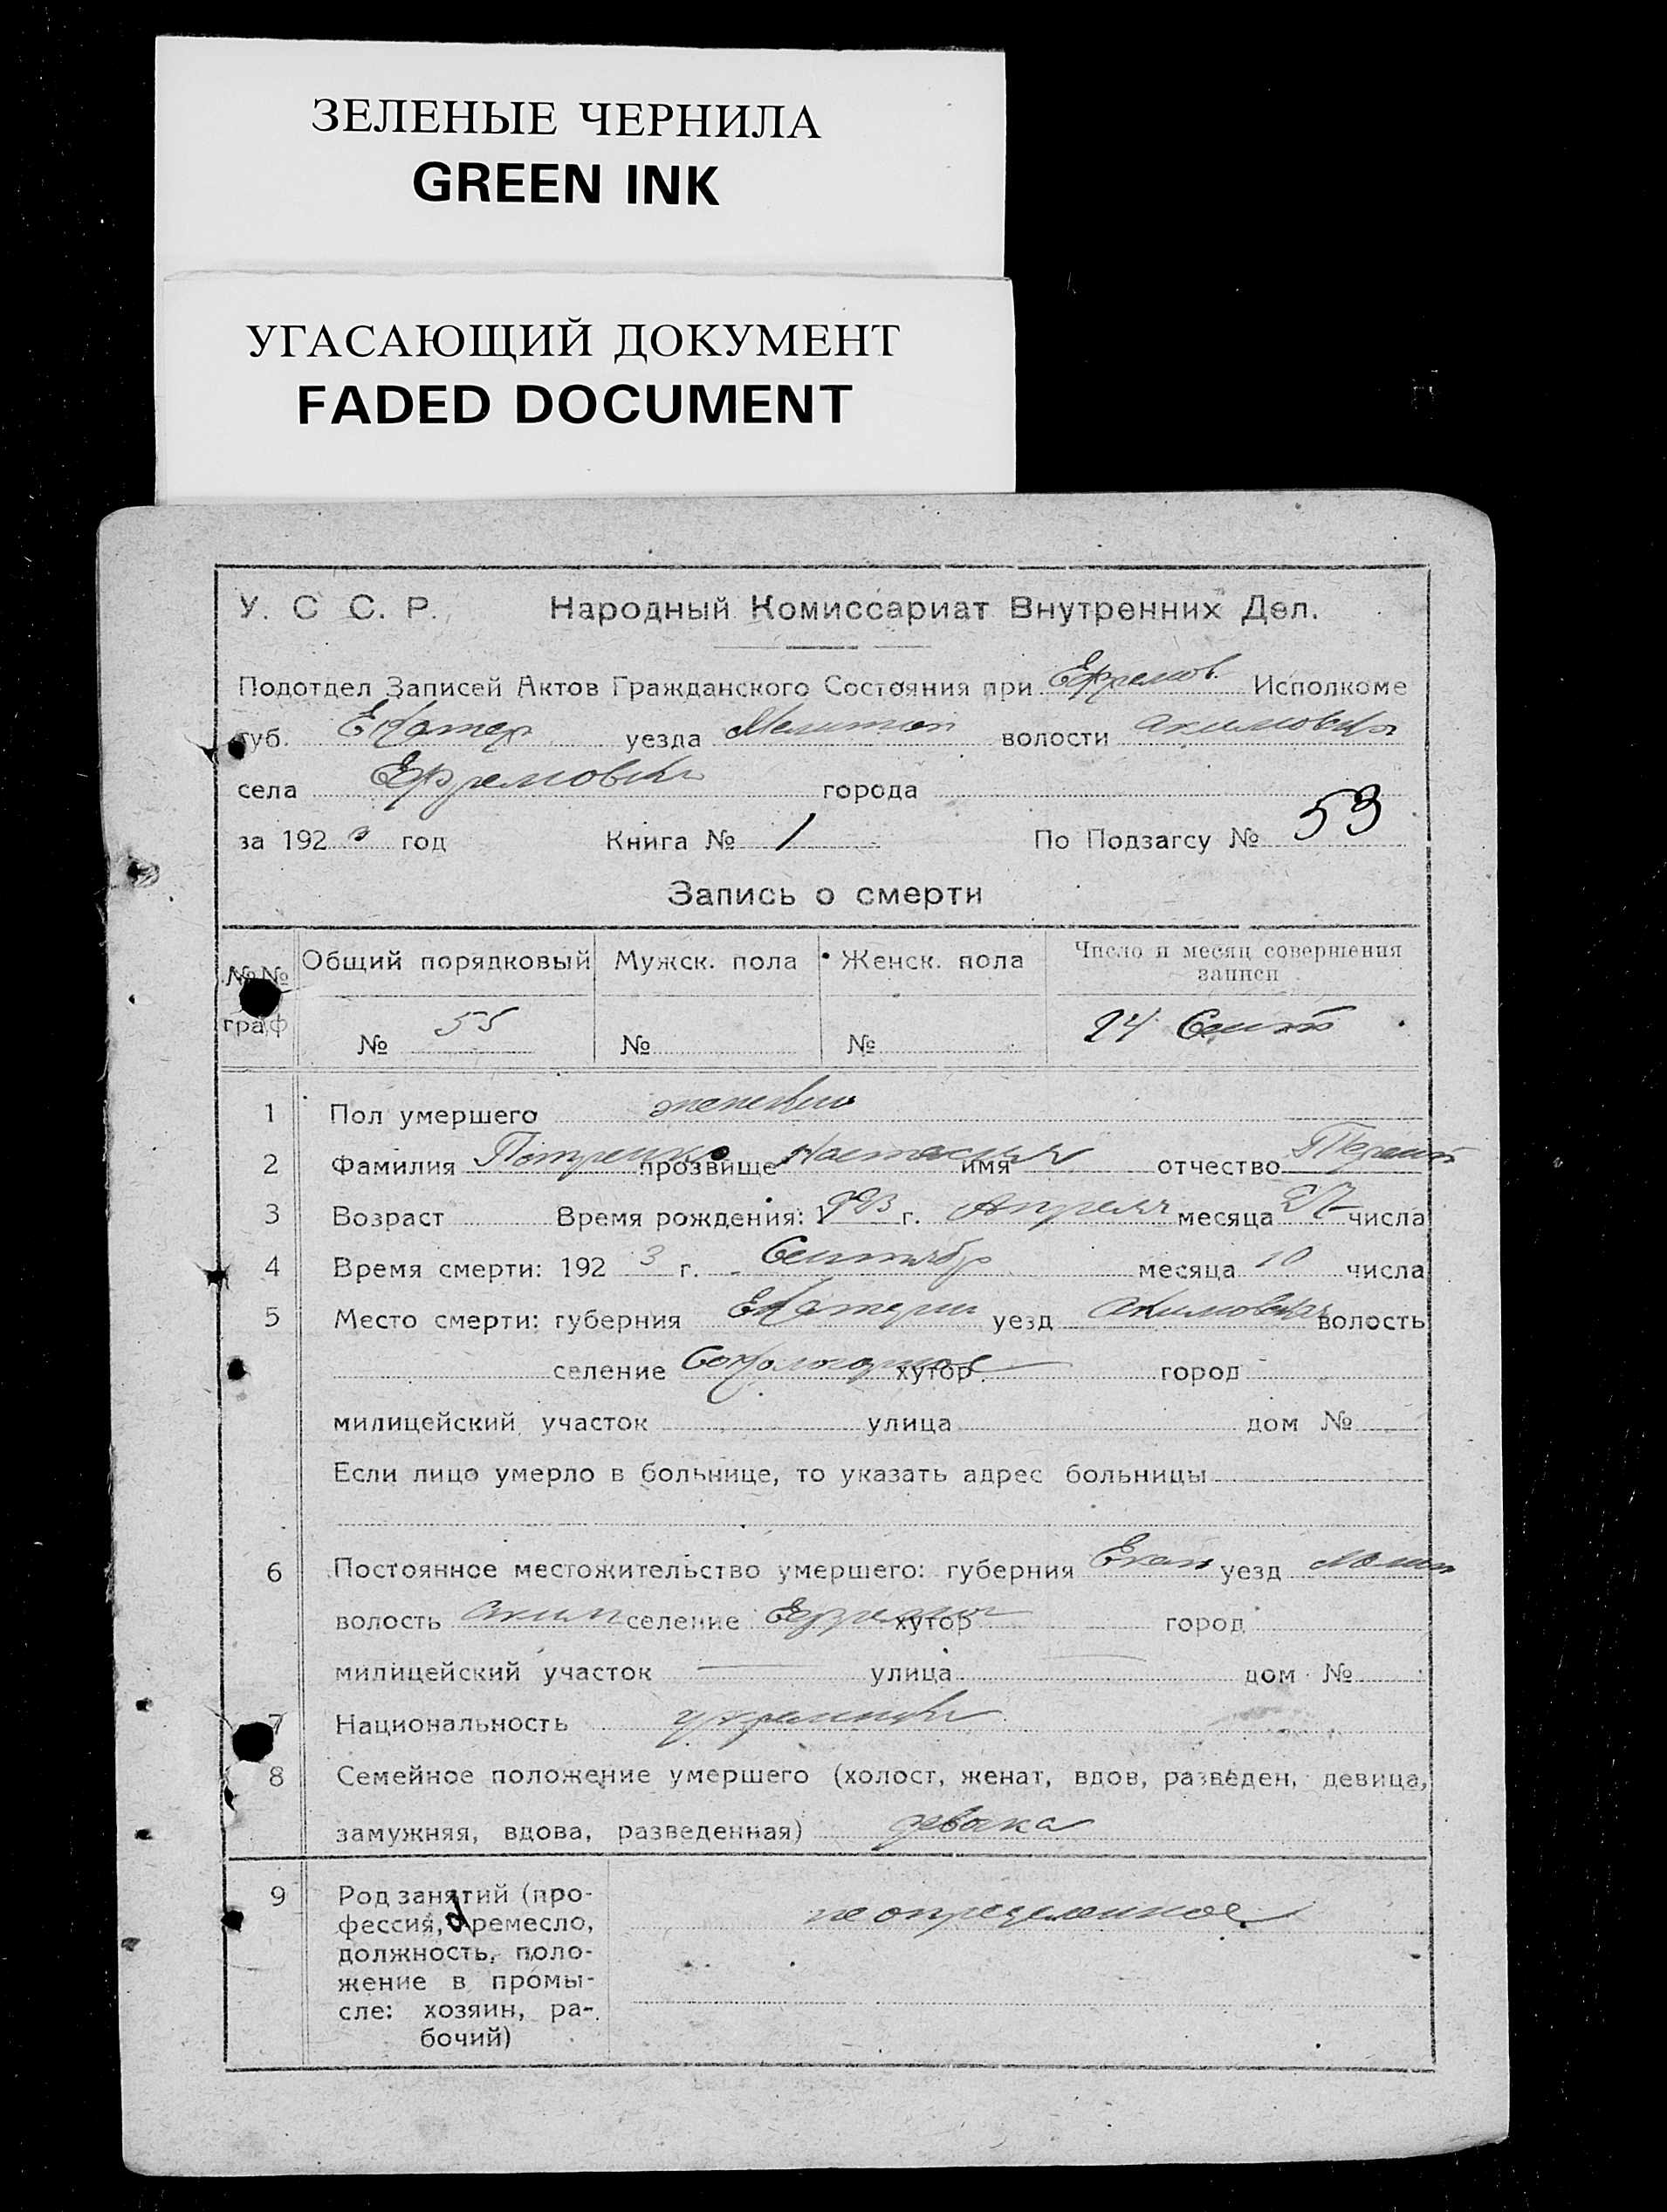 ЗЕЛЕНЫЕ ЧЕРНИЛА
GREEN INK
УГАСАЮЩИЙ ДОКУМЕНТ
FADED DOCUMENT
У. С С. Р. Народный Комиссариат Внутренних Дел.
Подотдел Записей Актов Гражданского Состояния при Ефремов. Исполкоме
губ. Екатер уезда Мелитоп волости Акимовска
села Ефремовка города
за 192 3 год Книга № 1 По Подзагсу № 53
Запись о смерти
№№ граф Общий порядковый Мужск. пола Женск. пола Число и месяц совершения
записи
№ 55 № № 24 Сент
1 Пол умершего женский
2 Фамилия прозвище Настасия имя отчество
3 Возраст Время рождения: 1923 г. Апреля месяца числа
4 Время смерти: 192 3 г. Сентябр месяца 10 числа
5 Место смерти: губерния Екатерин уезд Акимовская волость
селение хутор город
милицейский участок улица дом №
Если лицо умерло в больнице, то указать адрес больницы
6 Постоянное местожительство умершего: губерния Екат уезд
волость Аким селение хутор город
милицейский участок — улица — дом №
7 Национальность украинка
8 Семейное положение умершего (холост, женат, вдов, разведен, девица,
замужняя, вдова, разведенная) девока
9 Род занятий (про-
фессия, ремесло, не определенное
должность, поло-
жение в промы-
сле: хозяин, ра-
бочий)